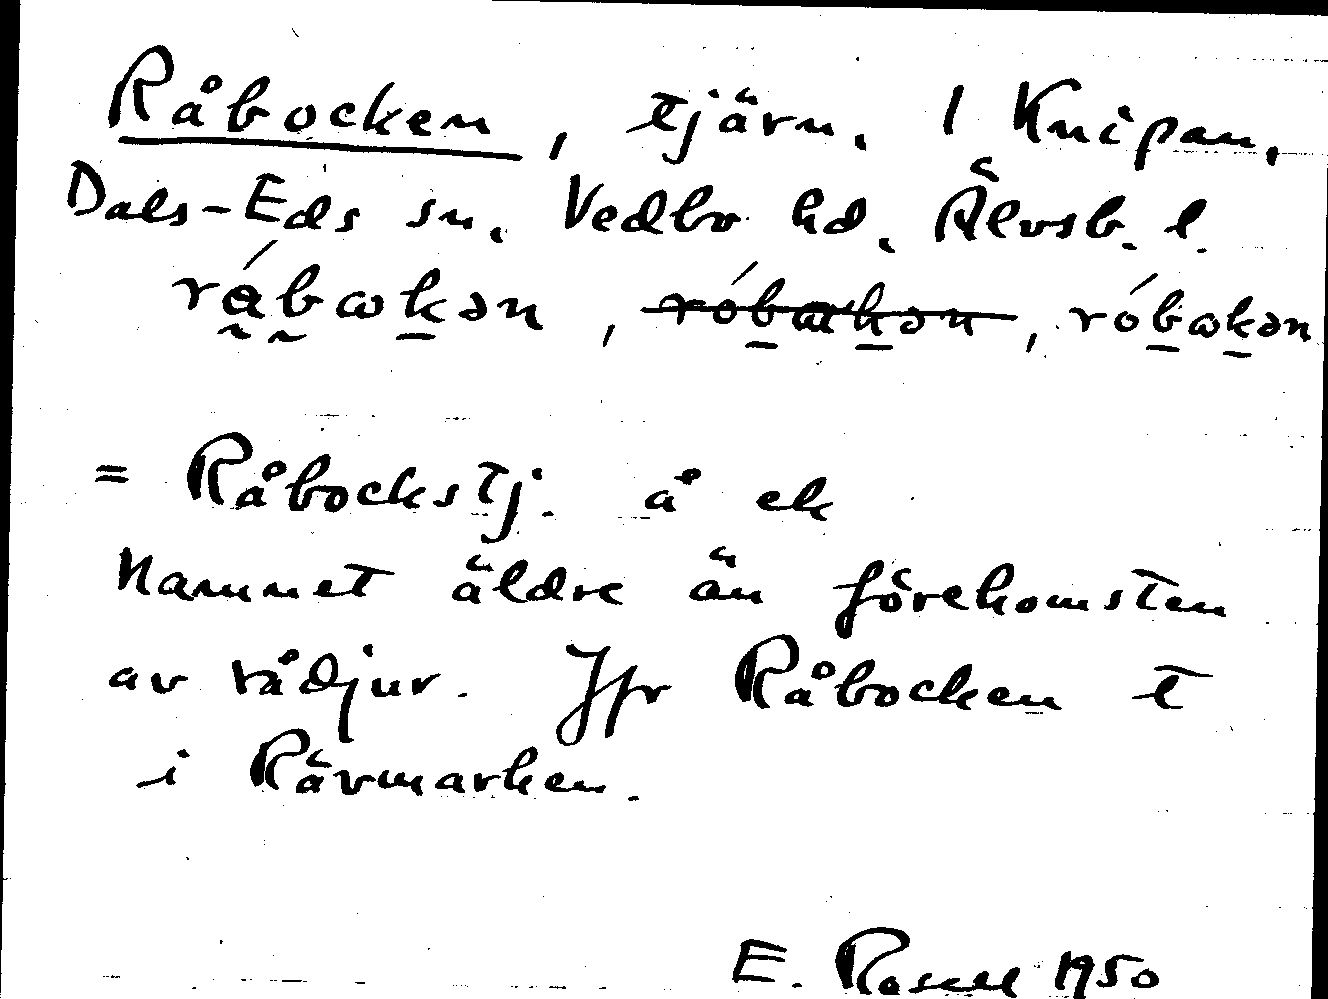 Råbocken, tjärn. I Knipan,
Dals-Eds sn. Vedbo hd. Älvsb. l.
rǻbωkən, róbωkən, róbωkən
= Råbockstj. å ek
Namnet äldre än förekomsten
av rådjur. Jfr Råbocken t
i Rävmarken.
E. Rosell 1950